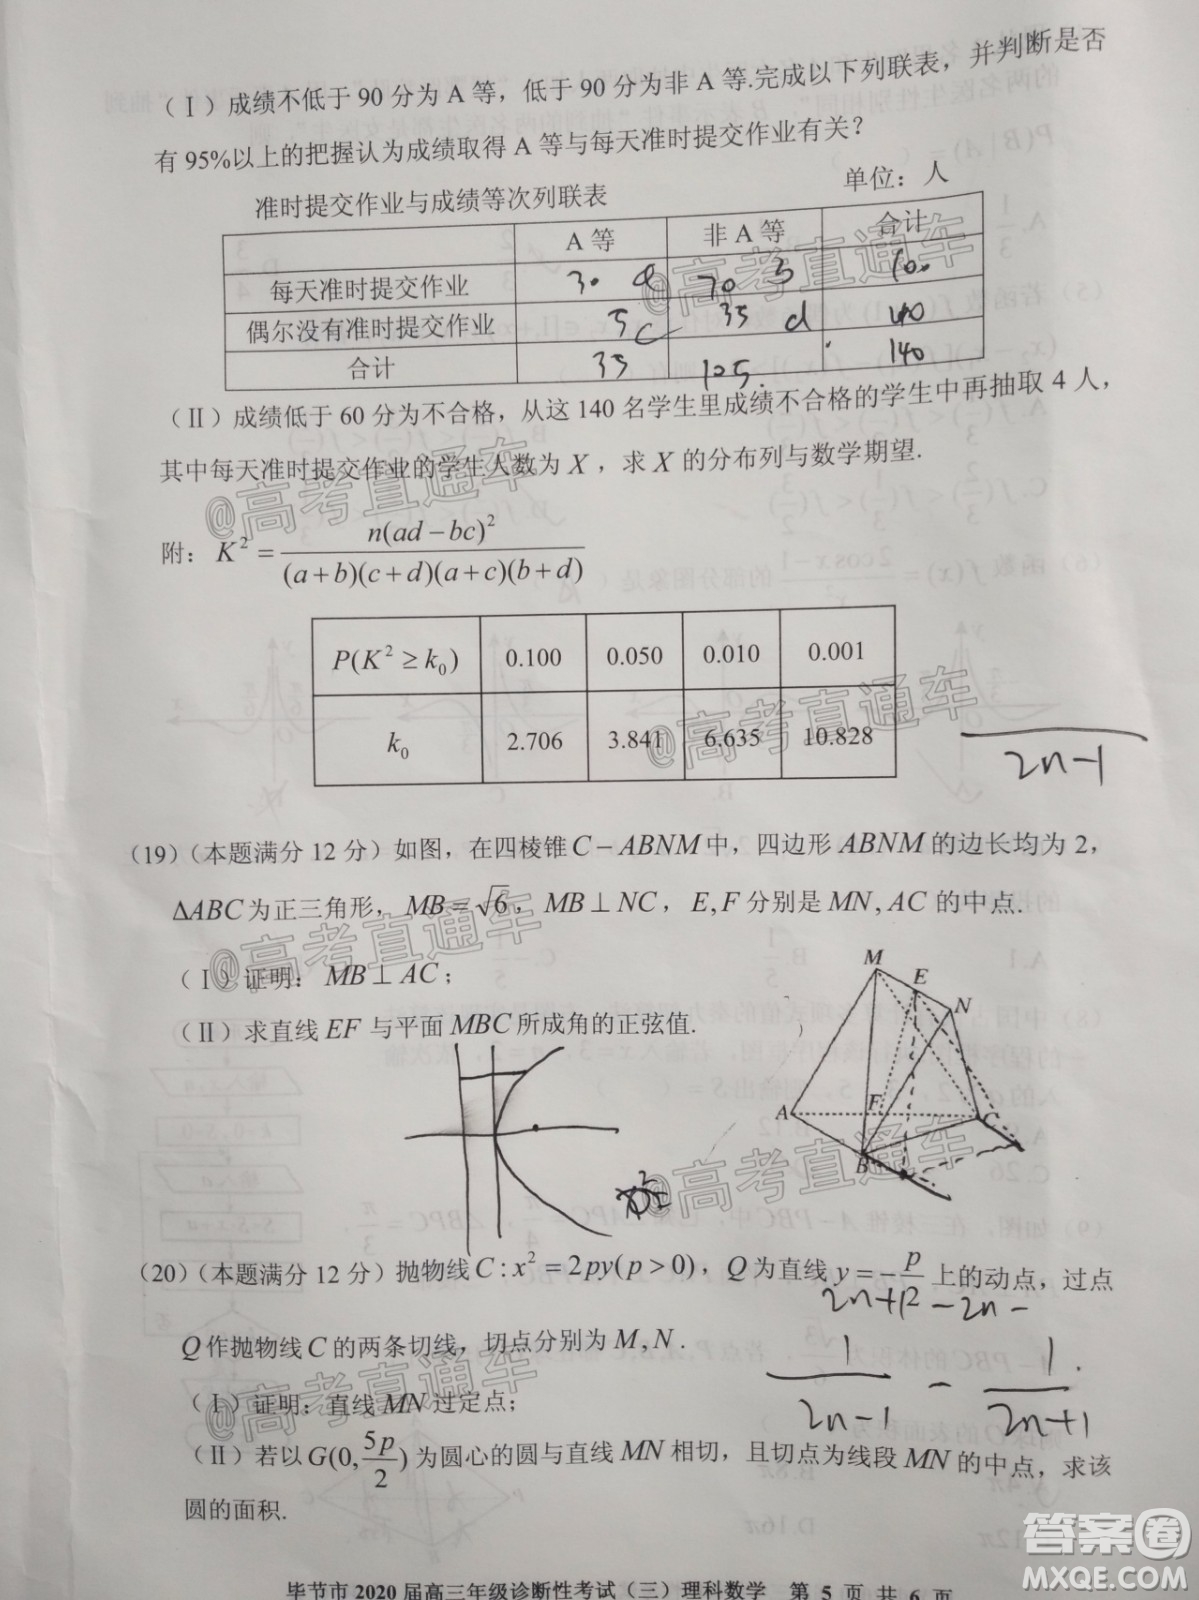 (Ⅰ)成绩不低于90分为A等，低于90分为非A等.完成以下列联表，并判断是否
有95%以上的把握认为成绩取得A等与每天准时提交作业有关？
准时提交作业与成绩等次列联表 单位：人
A等 非A等 合计
每天准时提交作业 30 a 70 b 100
偶尔没有准时提交作业 5 c 35 d 40
合计 35 105 140
(Ⅱ)成绩低于60分为不合格，从这140名学生里成绩不合格的学生中再抽取4人，
其中每天准时提交作业的学生人数为X，求X的分布列与数学期望.
附：K²=n(ad−bc)²/(a+b)(c+d)(a+c)(b+d)
P(K²≥k₀) 0.100 0.050 0.010 0.001
k₀ 2.706 3.841 6.635 10.828
2n-1
(19)(本题满分12分)如图，在四棱锥C−ABNM中，四边形ABNM的边长均为2，
ΔABC为正三角形，MB=√6，MB⊥NC，E,F分别是MN,AC的中点.
(Ⅰ)证明：MB⊥AC；
(Ⅱ)求直线EF与平面MBC所成角的正弦值.
M
E
N
A
F
C
B
(20)(本题满分12分)抛物线C:x²=2py(p>0)，Q为直线y=−p/2上的动点，过点
Q作抛物线C的两条切线，切点分别为M,N.
(Ⅰ)证明：直线MN过定点；
(Ⅱ)若以G(0,5p/2)为圆心的圆与直线MN相切，且切点为线段MN的中点，求该
圆的面积.
2n+1-2n-
1/2n-1 - 1/2n+1
毕节市2020届高三年级诊断性考试（三）理科数学 第5页 共6页
@高考直通车
@高考直通车
@高考直通车
@高考直通车
@高考直通车
@高考直通车
答案圈
MXQE.COM